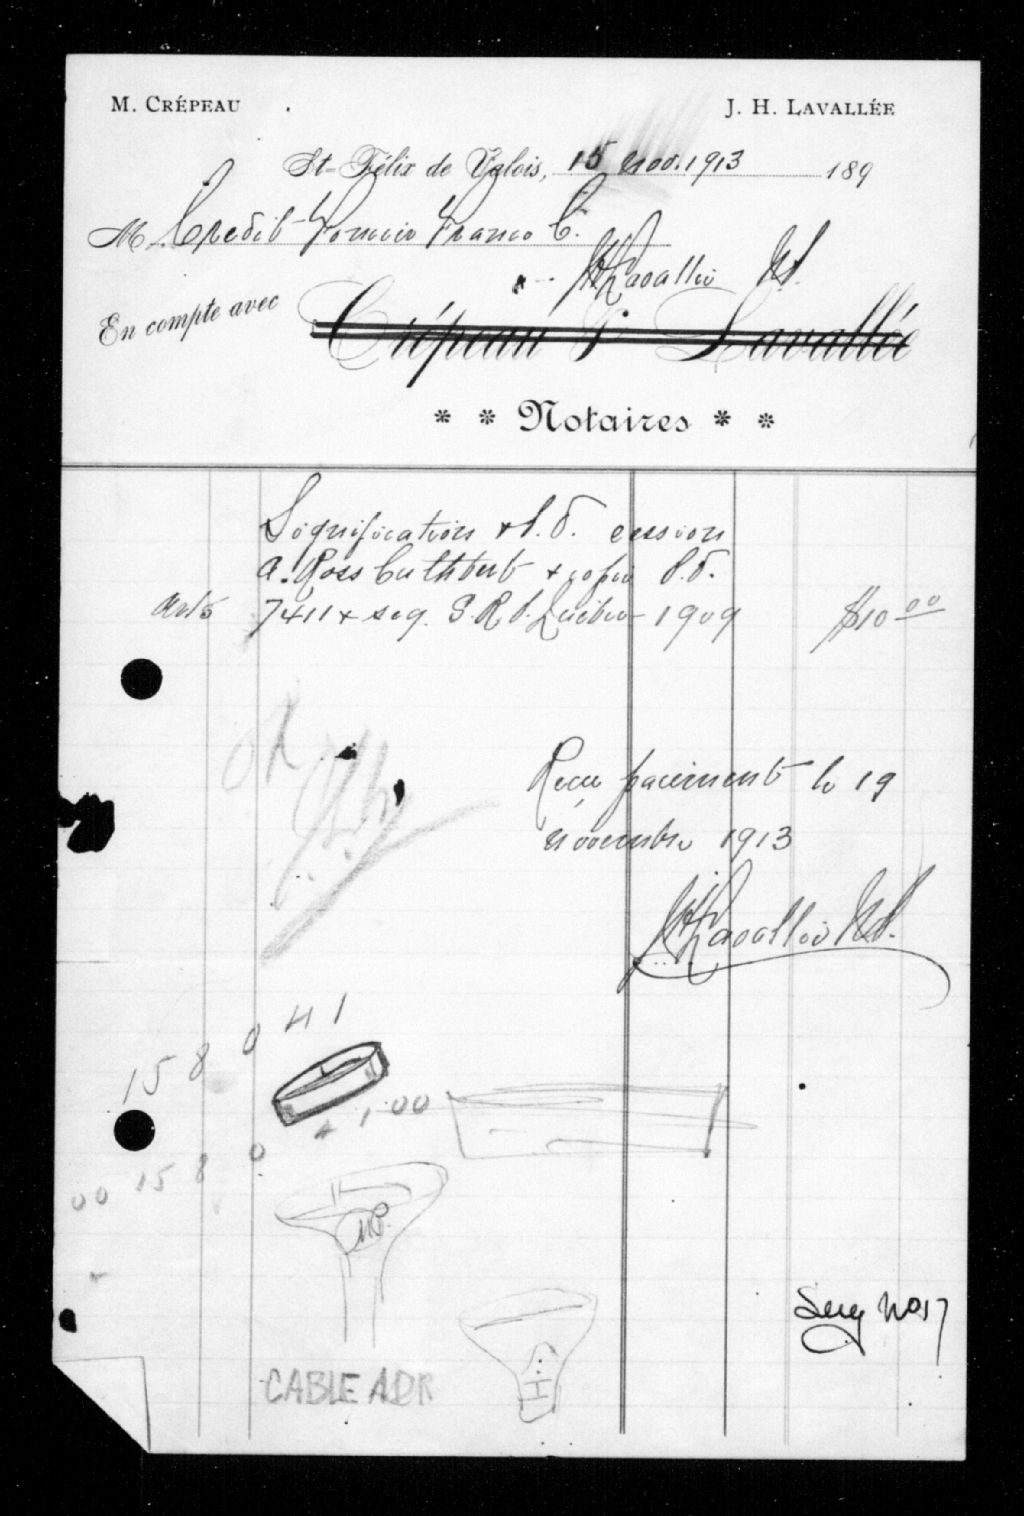 M. CRÉPEAU J. H. LAVALLÉE
St-Félix de Valois, 15 nov. 1913 189
M Credit Foncier Franco C.
JHLavallée N.P.
En compte avec Crépeau & Lavallée
* * Notaires * *
Signification & P.V. cession
A. Ross Cuthbert & copie P.V.
Arts 7411 & seq. S.R.P. Québec 1909 $10 00
OK
Recu paiement le 19
novembre 1913
JHLavallée N.P.
15 8 0 41
1.00
00 15 8 0
CABLE ADR